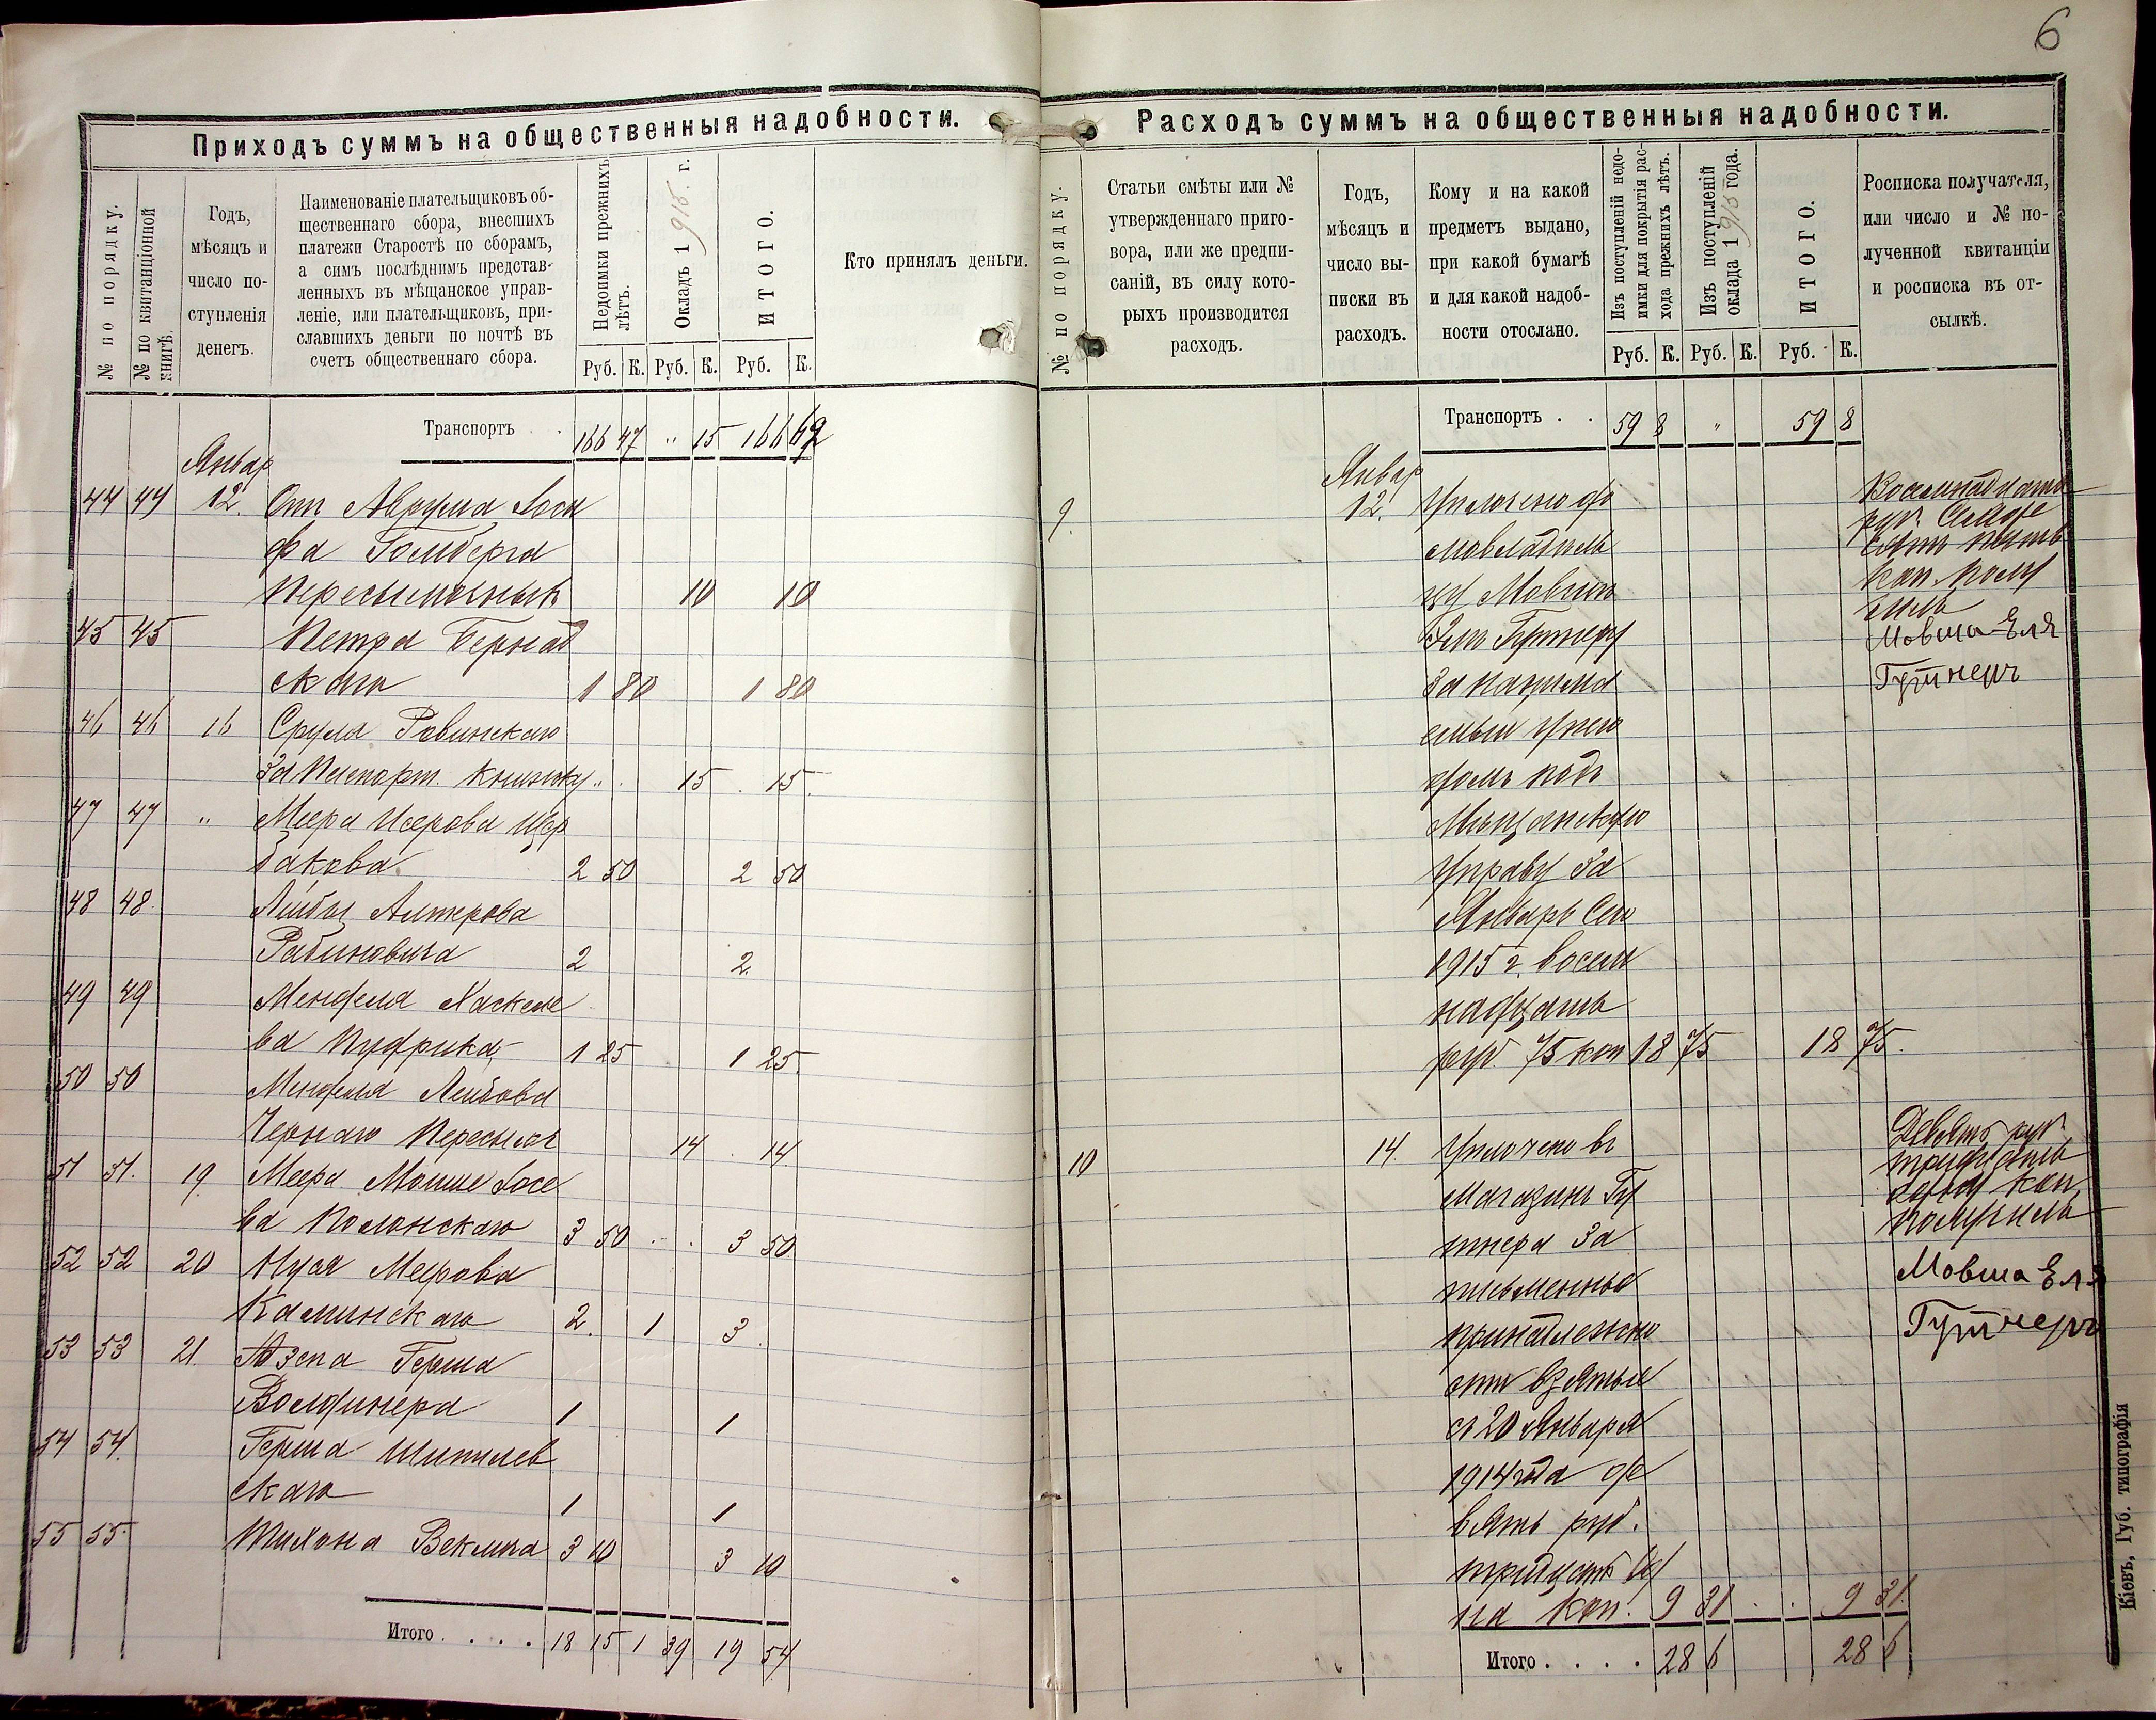 6
Приходъ суммъ на общественныя надобности.
№ по порядку.
№ по квитанціонной книгѣ.
Годъ,
мѣсяцъ и
число по-
ступленія
денегъ.
Наименованіе плательщиковъ об-
щественнаго сбора, внесшихъ
платежи Старостѣ по сборамъ,
а симъ послѣднимъ представ-
ленныхъ въ мѣщанское управ-
леніе, или плательщиковъ, при-
славшихъ деньги по почтѣ въ
счетъ общественнаго сбора.
Недоимки прежнихъ
лѣтъ.
Окладъ 1915 г.
ИТОГО.
Кто принялъ деньги.
Руб. К. Руб. К. Руб. К.
Транспортъ 166 47 " 15 166 62
Январ
44 44 12. От Аврума Іоси
фа Гомберга
Пересылочныхъ 10 10
45 45 Петра Бернад
скаго 1 80 1 80
46 46 16 Срула Ровинскаго
За Паспорт. книжку " 15 15
47 47 " Меера Исерова Щер
бакова 2 50 2 50
48 48 Лейбы Алтерова
Рабиновича 2 2
49 49 Менделя Хаскеле
ва Пудрика 1 25 1 25
50 50 Менделя Лейбова
Чернаго Пересылоч 14 14
51 51. 19 Меера Мошше Іосе
ва Полонскаго 3 50 3 50
52 52 20 Нуся Меерова
Каминскаго 2. 1 3
53 53 21. Герша
1 1
54 54. Герша Шипилев
скаго 1 1
55 55. Тихона Веклича 3 10 3 10
Итого . . . . 18 15 1 39 19 54
Расходъ суммъ на общественныя надобности.
№ по порядку.
Статьи смѣты или №
утвержденнаго приго-
вора, или же предпи-
саній, въ силу кото-
рыхъ производится
расходъ.
Годъ,
мѣсяцъ и
число вы-
писки въ
расходъ.
Кому и на какой
предметъ выдано,
при какой бумагѣ
и для какой надоб-
ности отослано.
Изъ поступленій недо-
имки для покрытія рас-
хода прежнихъ лѣтъ.
Изъ поступленій
оклада 1915 года.
ИТОГО.
Росписка получателя,
или число и № по-
лученной квитанціи
и росписка въ от-
сылкѣ.
Руб. К. Руб. К. Руб. К.
Транспортъ . . 59 8 " 59 8
Январ
9. 12. Уплочено до
мовладѣль
цу Мовши
Эли Гутнеру
За нанима
емый у него
домъ подъ
Мѣщанскую
Управу За
Январь Сего
1915 г. восем
надцать
руб. 75 коп 18 75 18 75.
Восемнадцать
руб. Семде
сят пять
коп. полу
чилъ
Мовша Еля
Гутнеръ
10 14. Уплочено въ
магазинъ Гу
тнера За
письменные
принадлежно
сти взятые
съ 20 Января
1914 года де
вять руб.
тридцать од
на коп. 9 31 9 31.
Девять руб.
тридцать
одну коп.
получилъ
Мовша Еля
Гутнеръ
Итого . . . . 28 6 28 6
Кіевъ, Губ. типографія